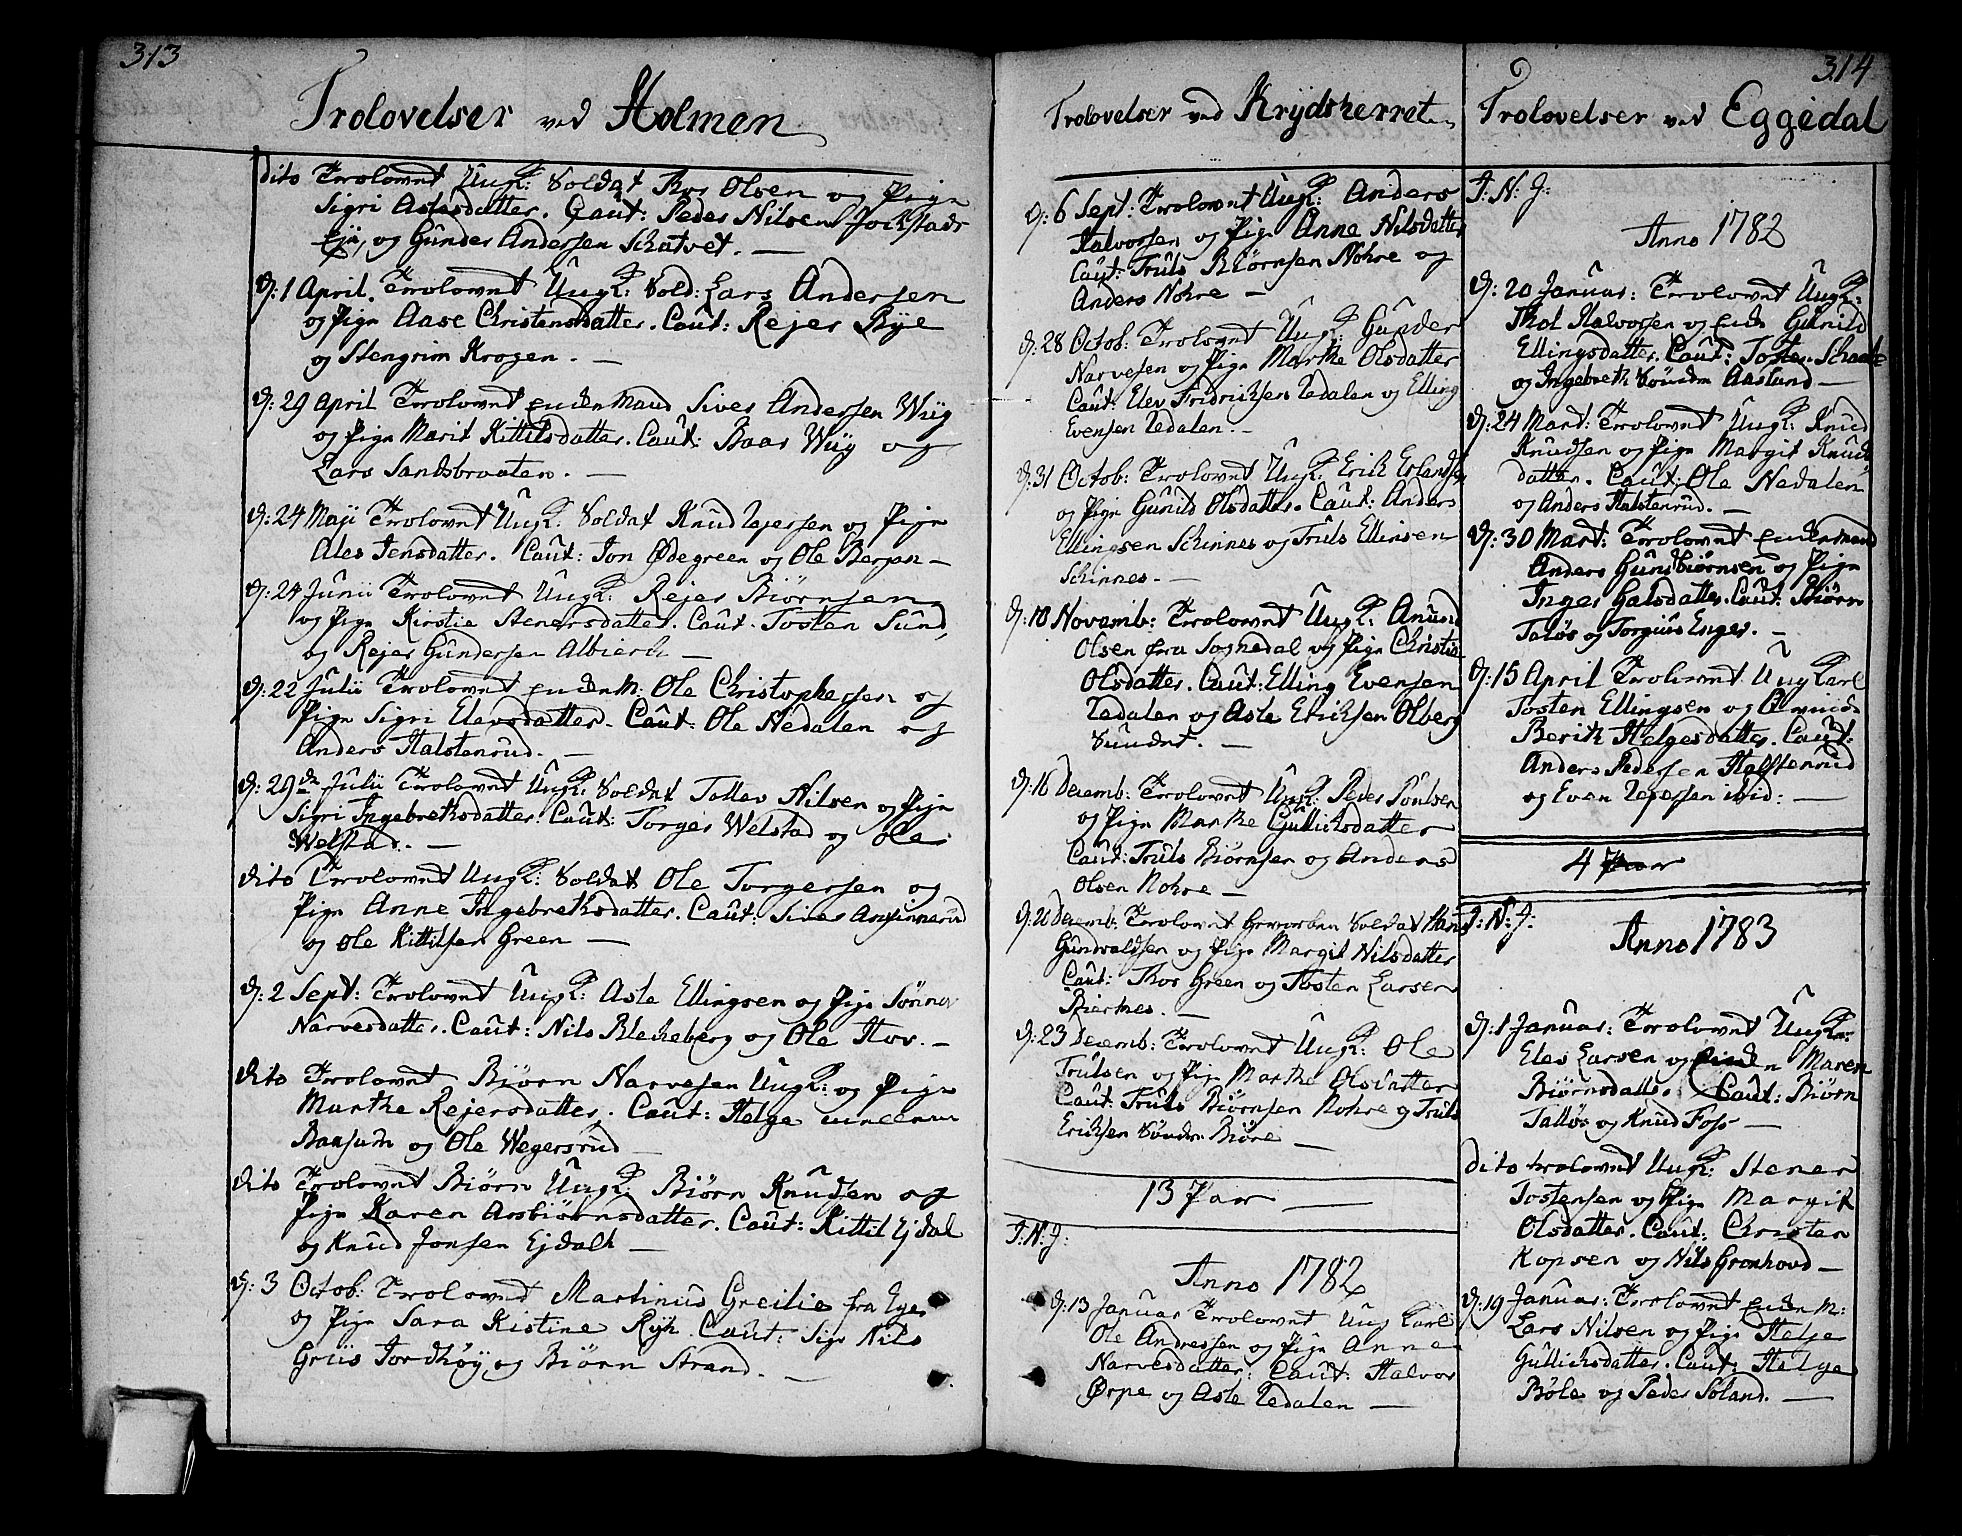 313
Trolovelser ved Holmen
dito Trolovet Ungk: Soldat Thor Olsen og Pige
Sigri Aslesdatter. Caut: Peder Nilsen Jockstads
Eje, og Gunder Andersen Schatvet. —
D: 1 April. Trolovet Ungk: Sold: Lars Andersen
og Pige Aase Christensdatter. Caut: Rejer Bye
og Stengrim Krogen. —
D: 29 April Trolovet Enckemand Siver Andersen Wiig
og Pige Marit Kittilsdatter. Caut: Baar Wiig og
Lars Sandsbraaten. —
D: 24 Maji Trolovet Ungk: Soldat Knud Jepersen og Pige
Ales Jensdatter. Caut: Jon Ødegreen og Ole Bergan —
D: 24 Junii Trolovet Ungk: Rejer Biørnsen
og Pige Kirstie Stenersdatter. Caut. Tosten Sund,
og Rejer Gundersen Albierk —
D: 22 Julii Trolovet Enckem: Ole Christophersen og
Pige Sigri Elevsdatter. Caut: Ole Nedalen og
Anders Halstenrud. —
D: 29de Julii Trolovet Ungk: Soldat Tollev Nilsen og Pige
Sigri Ingebrethsdatter. Caut: Torger Welstad og Ole
Welstad. —
dito Trolovet Ungk: Soldat Ole Torgersen og
Pige Anne Ingebrethsdatter. Caut: Siver
og Ole Kittilsen Green —
D: 2 Sept: Trolovet Ungk: Asle Ellingsen og Pige Sønnev
Narvesdatter. Caut: Nils Blekeberg og Ole Hov. —
dito Trolovet Bjørn Narvesen Ungk: og Pige
Marthe Rejersdatter. Caut: Helge
Baasum og Ole Wegersrud
dito Trolovet Biørn Ungk: Biørn Knudsen og
Pige Karen Asbiørnsdatter. Caut: Kittil Ejdal
og Knud Jonsen Ejdalh —
D: 3 Octob: Trolovet Martinus Greilie fra Eger
og Pige Sara Kistine Ryh. Caut: Sigr Nils
Griis Jordhøy og Biørn Strand. —
Trolovelser ved Krydsherret
D: 6 Sept: Trolovet Ungk: Anders
Halvorsen og Pige Anne Nilsdatter
Caut: Truls Biørnsen Nohre og
Anders Nohre —
D: 28 Octob: Trolovet Ungk: Gunder
Narvesen og Pige Marthe Olsdatter
Caut: Elev Fridrichsen Jedalen og Elling
Evensen Jedalen. —
D: 31 Octob: Trolovet Ungk: Erik Erlandsen
og Pige Gunild Olsdatter. Caut: Anders
Ellingsen Schinnes og Truls Ellinsen
Schinnes. —
D: 18 Novemb: Trolovet Ungk: Anund
Olsen fra Sognedal og Pige Christie
Olsdatter. Caut: Elling Evensen
Jedalen og Asle Eriksen Olberg
Sundet. —
D: 16 Decemb: Trolovet Ungk: Peder Poulsen
og Pige Marthe Gullichsdatter
Caut: Truls Biørnsen og Anders
Olsen Nohre —
D: 20 Decemb: Trolovet Gevorben Soldat Hans
Gundvaldsen og Pige Margit Nilsdatter
Caut: Thor Green og Tosten Larsen
Bierknes. —
D: 23 Decemb: Trolovet Ungk: Ole
Trulsen og Pige Marthe Olsdatter
Caut: Truls Biørnsen Nohre og Truls
Eriksen Søndre Biøre —
13 Par —
I: N: J:
Anno 1782
D: 13 Januar Trolovet Ung Karl
Ole Andressen og Pige Anne
Narvesdatter: Caut: Halvor
Ørpe og Asle Jedalen —
314
Trolovelser ved Eggedal
I: N: J:
Anno 1782
D: 20 Januar: Trolovet Ungk:
Thol Halvorsen og Enke Gunild
Ellingsdatter. Caut: Tosten Schaale
og Ingebreth Søndre Aasland —
D: 24 Mart: Trolovet Ungk: Knud
Knudsen og Pige Margit Knuds
datter. Caut: Ole Nedalen
og Anders Halstenrud. —
D: 30 Mart: Trolovet Enckemand
Anders Gunbiørnsen og Pige
Inger Galsdatter. Caut: Biørn
Taløs og Torgius Enger. —
D: 15 April Trolovet Ung Karl
Tosten Ellingsen og
Berith Helgesdatter. Caut:
Anders Pedersen Halstenrud
og Even Jepersen ibid: —
4 Par
I: N: J:
Anno 1783
D: 1 Januar: Trolovet Ungk:
Elev Larsen og Maren
Biørnsdatter. Caut: Biørn
Talløs og Knud Foss —
dito trolovet Ungk: Stener
Tostensen og Pige Margit
Olsdatter. Caut: Christen
Kopsen og Nils Gronhovd —
D: 19 Januar: Trolovet Enckem:
Lars Nilsen og Pige Helge
Gullichsdatter. Caut: Helge
Bøle og Peder Soland. —